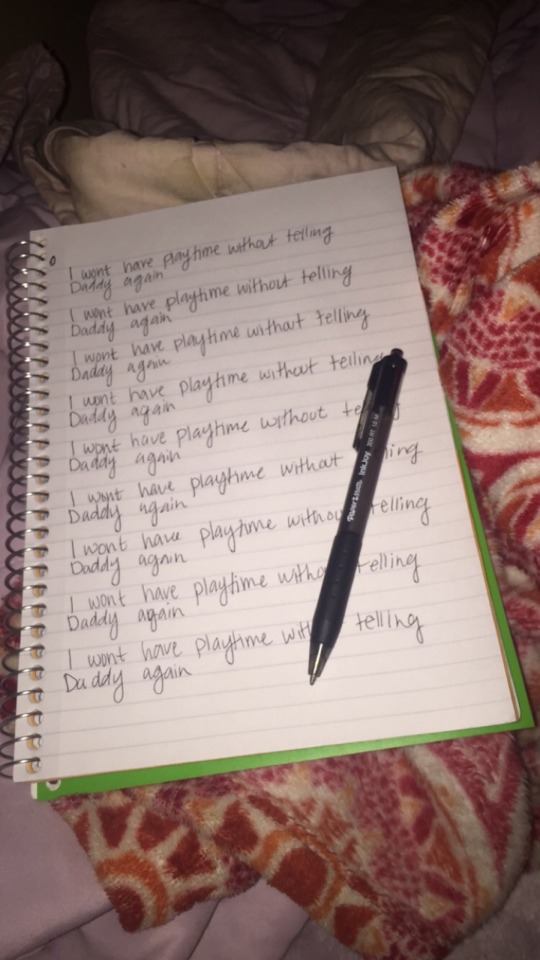 I wont have playtime without telling
Daddy again
I wont have playtime without telling
Daddy again
I wont have playtime without telling
Daddy again
I wont have playtime without telling
Daddy again
I wont have playtime without
Daddy again
I wont have playtime without
Daddy again
I wont have playtime without telling
Daddy again
I wont have playtime without telling
Daddy again
I wont have playtime telling
Daddy again
Paper Mate InkJoy 300 RT 1.0 M